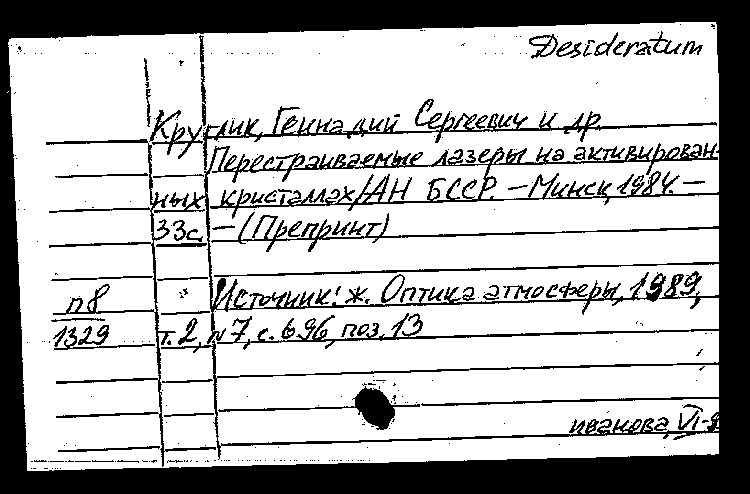 Desideratum
Круглик, Геннадий Сергеевич и др.
Перестраиваемые лазеры на активирован-
ных кристаллах/АН БССР. – Минск, 1984. –
33с. – (Препринт)
п8 Источник: ж. Оптика атмосферы, 1989,
1329 т. 2, №7, с. 696, поз. 13
иванова, VI-